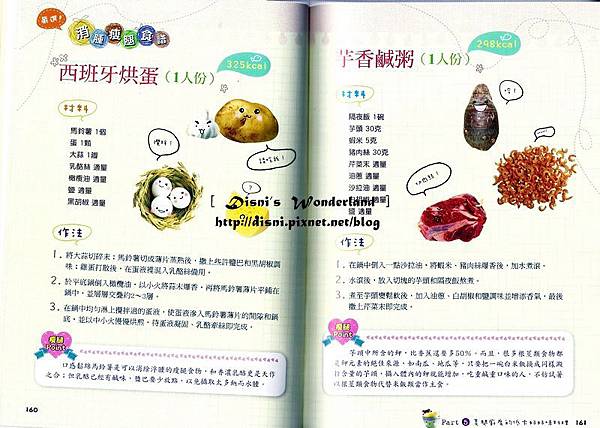 嚴選！
消腫瘦腿食譜
325kcal
西班牙烘蛋(1人份)
材料
馬鈴薯 1個
蛋 1顆
大蒜 1瓣
乳酪絲 適量
橄欖油 適量
鹽 適量
黑胡椒 適量
作法
1. 將大蒜切碎末；馬鈴薯切成薄片蒸熟後，撒上些許鹽巴和黑胡椒調
味；雞蛋打散後，在蛋液裡混入乳酪絲備用。
2. 於平底鍋倒入橄欖油，以小火將蒜末爆香，再將馬鈴薯薄片平鋪在
鍋中，並層層交疊約2～3層。
3. 在鍋中均勻淋上攪拌過的蛋液，使蛋液滲入馬鈴薯薄片的間隙和鍋
底，並以中小火慢慢烘煎，待蛋液凝固、乳酪牽絲即完成。
瘦腿
Point
口感鬆綿馬鈴薯是可以消除浮腫的瘦腿食物，和香濃乳酪更是大作
之合；但乳酪已經有鹹味，鹽巴要少放點，以免攝取太多鈉而水腫。
160
[ Disni's Wonderland ]
http://disni.pixnet.net/blog
298kcal
芋香鹹粥(1人份)
材料
隔夜飯 1碗
芋頭 30克
蝦米 5克
豬肉絲 30克
芹菜末 適量
油蔥 適量
沙拉油 適量
白胡椒 適量
鹽 適量
作法
1. 在鍋中倒入一點沙拉油，將蝦米、豬肉絲爆香後，加水煮滾。
2. 水滾後，放入切塊的芋頭和隔夜飯熬煮。
3. 煮至芋頭變鬆軟後，加入油蔥、白胡椒和鹽調味並增添香氣，最後
撒上芹菜末即完成。
瘦腿
Point
芋頭中所含的鉀，比香蕉還要多50%。而且，很多根莖類食物都
是鉀元素的絕佳來源，如南瓜、地瓜等，只要把一碗白米飯換成同樣澱
粉含量的芋頭，攝入體內的鉀就能增加。吃重鹹重口味的人，不妨試著
以根莖類食物代替米飯類當作主食。
Part 5
161